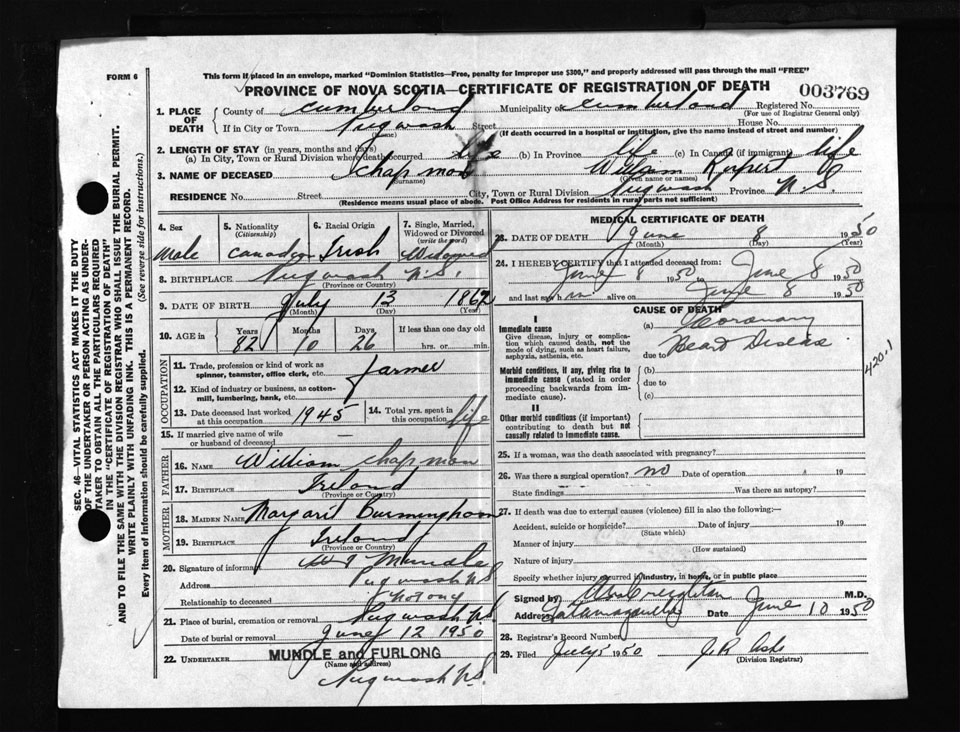 FORM 6
This form if placed in an envelope, marked "Dominion Statistics—Free, penalty for improper use $300," and properly addressed will pass through the mail "FREE"
PROVINCE OF NOVA SCOTIA—CERTIFICATE OF REGISTRATION OF DEATH 003769
1. PLACE OF DEATH County of Cumberland Municipality of Cumberland Registered No.
(For use of Registrar General only)
If in City or Town Pugwash Street House No.
(Name) (If death occurred in a hospital or institution, give the name instead of street and number)
2. LENGTH OF STAY (in years, months and days)
(a) In City, Town or Rural Division where death occurred life (b) In Province life (c) In Canada (if immigrant) life
3. NAME OF DECEASED Chapman William Rupert
(Surname) (Given name or names)
RESIDENCE No. Street City, Town or Rural Division Pugwash Province N.S.
(Residence means usual place of abode. Post Office Address for residents in rural parts not sufficient)
4. Sex 5. Nationality (Citizenship) 6. Racial Origin 7. Single, Married, Widowed or Divorced (write the word)
Male Canadian Irish Widowed
8. BIRTHPLACE Pugwash N.S.
(Province or Country)
9. DATE OF BIRTH July 13 1867
(Month) (Day) (Year)
10. AGE IN Years Months Days If less than one day old
82 10 26 hrs. or min.
OCCUPATION
11. Trade, profession or kind of work as spinner, teamster, office clerk, etc. farmer
12. Kind of industry or business, as cotton-mill, lumbering, bank, etc.
13. Date deceased last worked at this occupation 1945 14. Total yrs. spent in this occupation life
15. If married give name of wife or husband of deceased —
FATHER
16. NAME William Chapman
17. BIRTHPLACE Ireland
(Province or Country)
MOTHER
18. MAIDEN NAME Margaret Burmingham
19. BIRTHPLACE Ireland
(Province or Country)
20. Signature of informant Mundle
Address Pugwash NS
Relationship to deceased not any
21. Place of burial, cremation or removal Pugwash NS.
Date of burial or removal June 12 1950
22. UNDERTAKER MUNDLE and FURLONG
(Name and address)
Pugwash N.S.
MEDICAL CERTIFICATE OF DEATH
23. DATE OF DEATH June 8 1950
(Month) (Day) (Year)
24. I HEREBY CERTIFY that I attended deceased from:
June 8 1950 to June 8 1950
and last saw him alive on June 8 1950
CAUSE OF DEATH
I
Immediate cause (a) Coronary
Give disease, injury or complication which caused death, not the mode of dying, such as heart failure, asphyxia, asthenia, etc.
due to Heart Disease
420.1
Morbid conditions, if any, giving rise to immediate cause (stated in order proceeding backwards from immediate cause).
(b)
due to
(c)
II
Other morbid conditions (if important) contributing to death but not causally related to immediate cause.
25. If a woman, was the death associated with pregnancy?
26. Was there a surgical operation? no Date of operation 19
State findings Was there an autopsy?
27. If death was due to external causes (violence) fill in also the following:—
Accident, suicide or homicide? Date of injury 19
(State which)
Manner of injury
(How sustained)
Nature of injury
Specify whether injury occurred in industry, in home, or in public place
Signed by Creighton M.D.
Address Tatamagouche Date June 10 1950
28. Registrar's Record Number
29. Filed July 5 1950
(Division Registrar)
SEC. 46—VITAL STATISTICS ACT MAKES IT THE DUTY
OF THE UNDERTAKER OR PERSON ACTING AS UNDER-
TAKER TO OBTAIN ALL THE PARTICULARS REQUIRED
IN THE "CERTIFICATE OF REGISTRATION OF DEATH"
AND TO FILE THE SAME WITH THE DIVISION REGISTRAR WHO SHALL ISSUE THE BURIAL PERMIT.
WRITE PLAINLY WITH UNFADING INK. THIS IS A PERMANENT RECORD.
Every item of information should be carefully supplied. (See reverse side for instructions.)